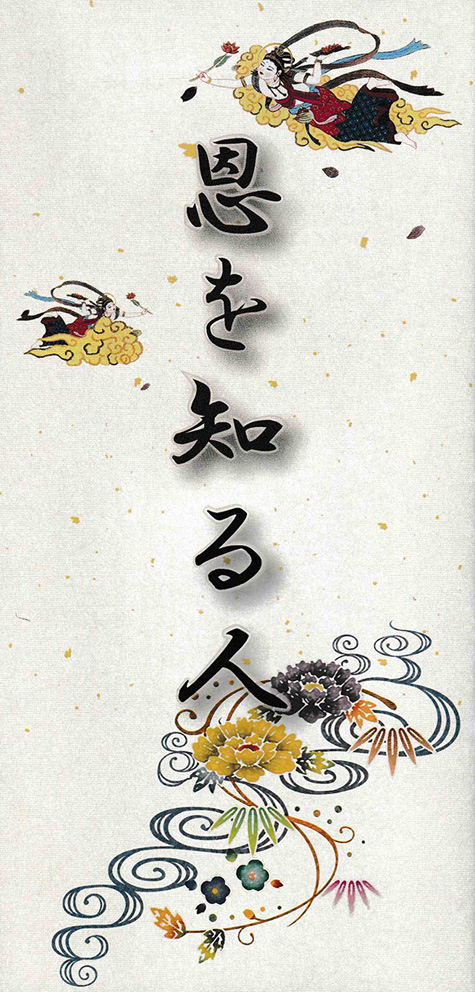 恩を知る人